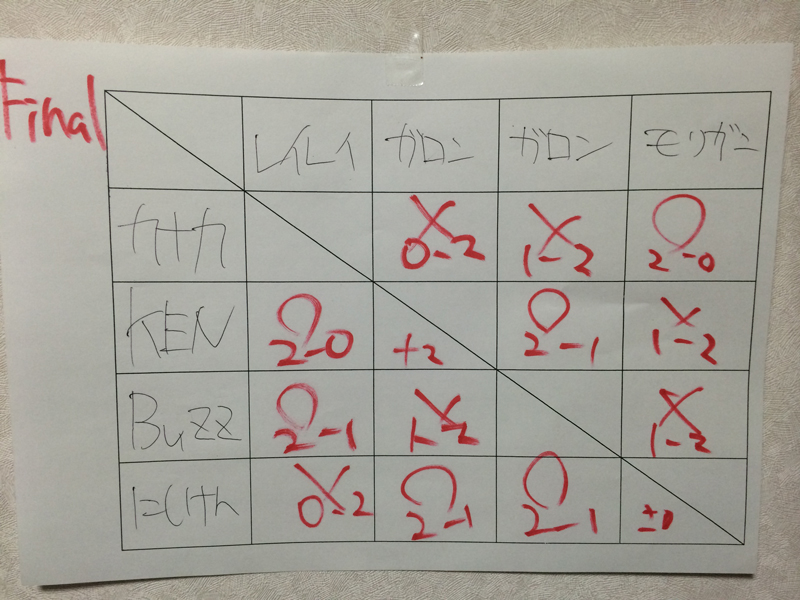 Final
レイレイ ガロン ガロン モリガン
カナカ × 0-2 × 1-2 ○ 2-0
KEN ○ 2-0 +2 ○ 2-1 × 1-2
Buzz ○ 2-1 × 1-2 × 1-2
にいけん × 0-2 ○ 2-1 ○ 2-1 ±0